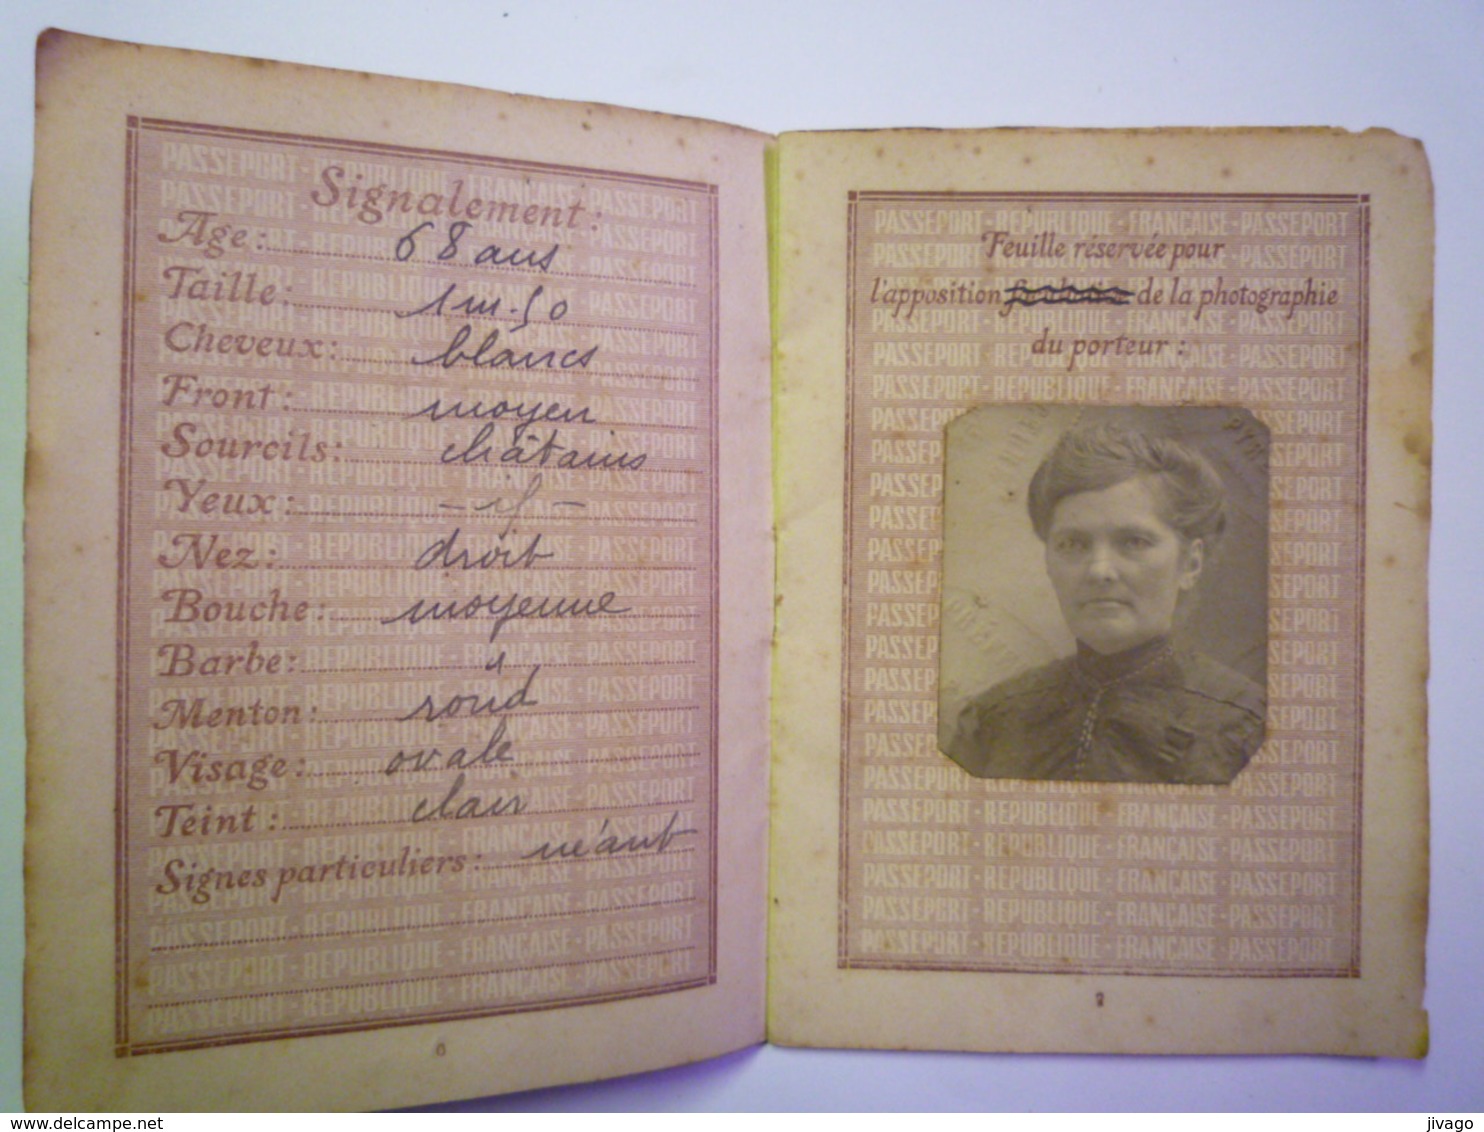 Signalement:
Age: 68 ans
Taille: 1m.50
Cheveux: blancs
Front: moyen
Sourcils: châtains
Yeux: -if-
Nez: droit
Bouche: moyenne
Barbe:
Menton: rond
Visage: ovale
Teint: clair
Signes particuliers: néant
6
Feuille réservée pour
l'apposition de la photographie
du porteur:
7
PASSEPORT-REPUBLIQUE-FRANÇAISE-PASSEPORT
delcampe.net
jivago